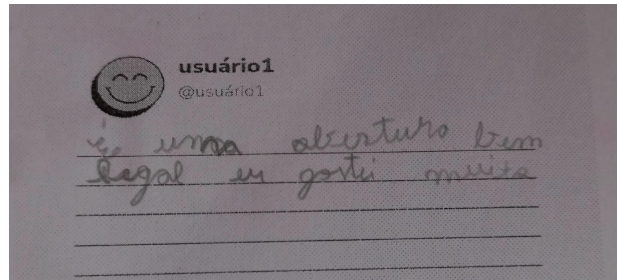 usuário1
@usuário1
É uma abertura bem
legal eu gostei muito